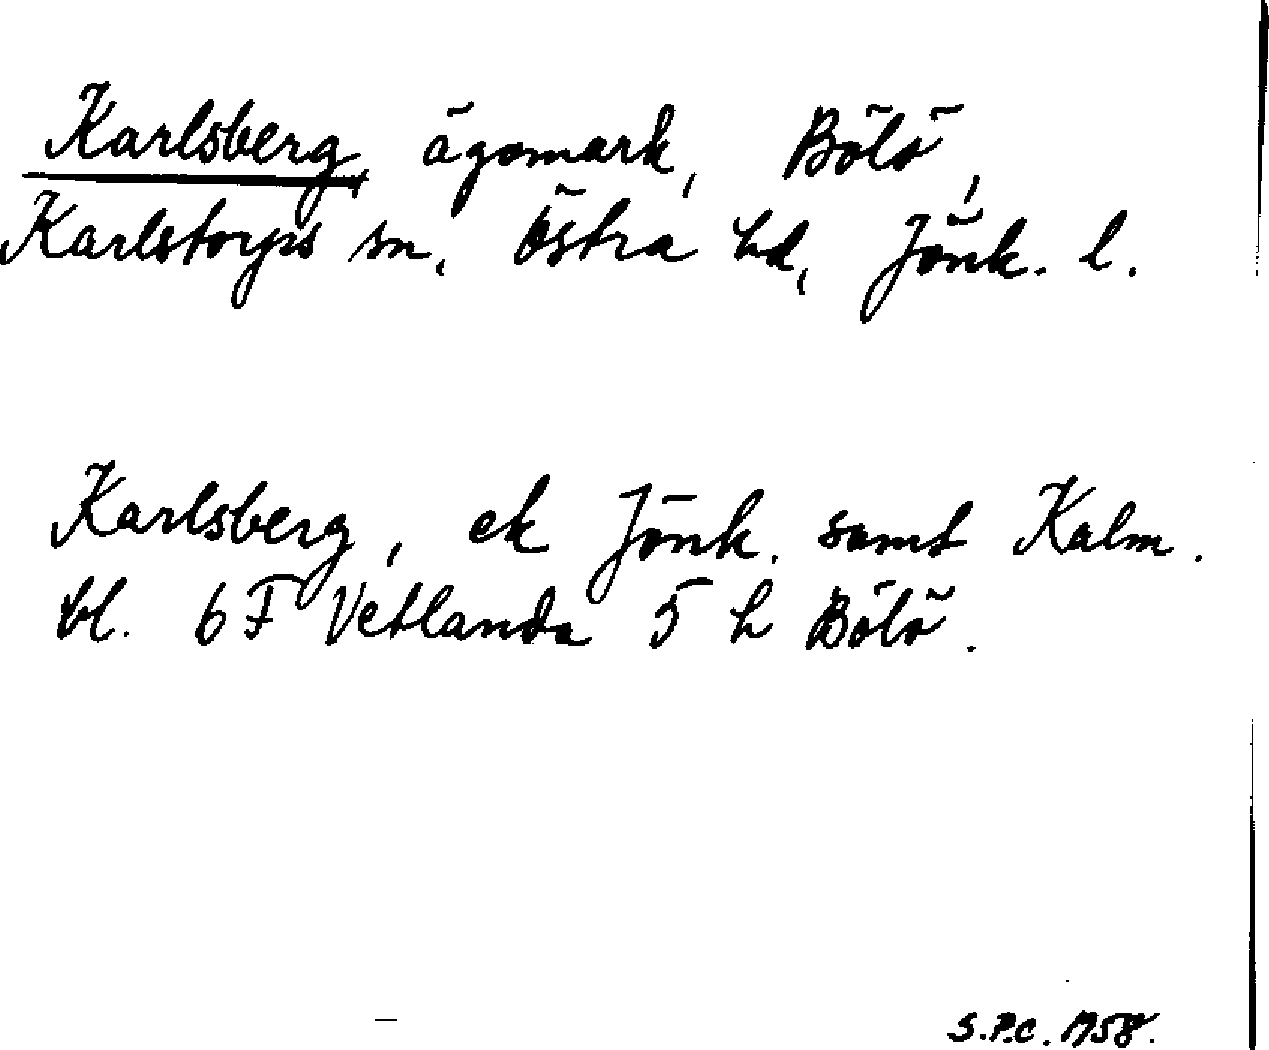 Karlsberg, ägomark, Bölö,
Karlstorps sn, Östra hd, Jönk. l.
Karlsberg, ek Jönk. samt Kalm.
bl. 6 F Vetlanda 5 h Bölö.
S.P.C. 1958.